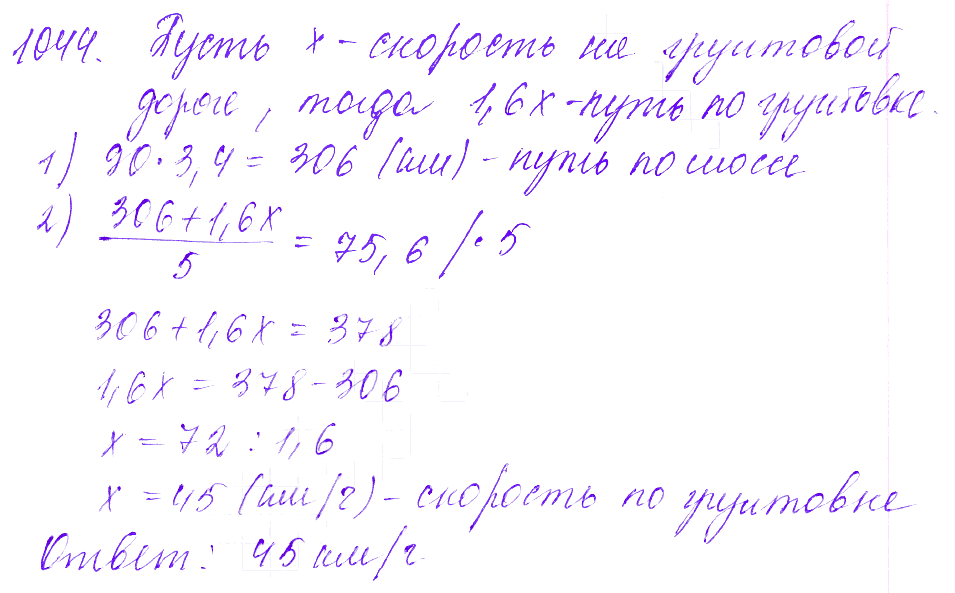 1044. Пусть x - скорость на грунтовой
дороге, тогда 1,6x - путь по грунтовке.
1) 90·3,4 = 306 (км) - путь по шоссе
2) (306+1,6x)/5 = 75,6 /·5
306+1,6x = 378
1,6x = 378-306
x = 72 : 1,6
x = 45 (км/ч) - скорость по грунтовке
Ответ: 45 км/ч